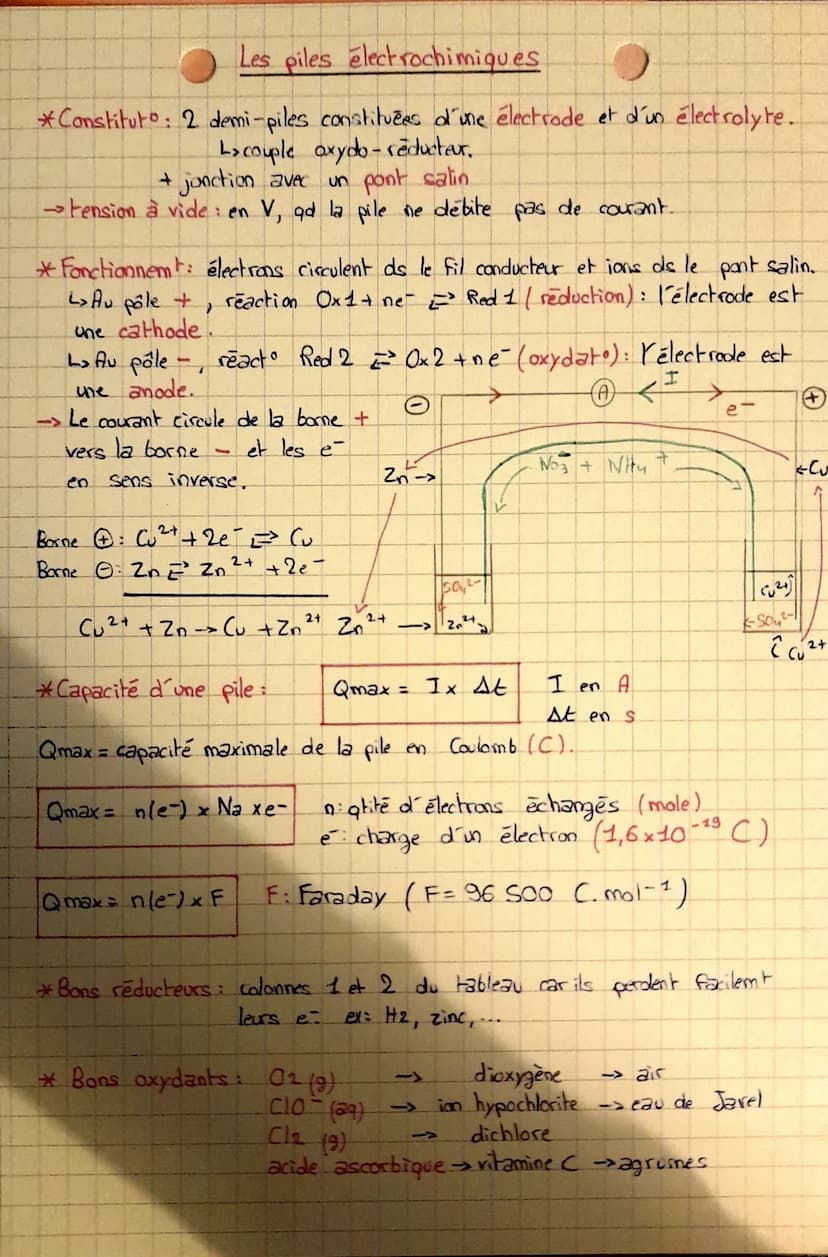 Les piles électrochimiques
*Constitut°: 2 demi-piles constituées d'une électrode et d'un électrolyte.
↳couple oxydo-réducteur.
+ jonction avec un pont salin
→tension à vide: en V, qd la pile ne débite pas de courant.
*Fonctionnemt: électrons circulent ds le fil conducteur et ions ds le pont salin.
↳Au pôle +, réaction Ox1 + ne⁻ ⇄ Red1 (réduction): l'électrode est
une cathode.
↳Au pôle -, réact° Red2 ⇄ Ox2 + ne⁻ (oxydat°): l'électrode est
une anode.
→ Le courant circule de la borne +
vers la borne - et les e⁻
en sens inverse.
⊖ A I e⁻ ⊕
Zn→ NO₃⁻ + NH₄⁺ ←Cu
Borne ⊕: Cu²⁺ + 2e⁻ ⇄ Cu
Borne ⊖: Zn ⇄ Zn²⁺ + 2e⁻
SO₄²⁻ Cu²⁺
Cu²⁺ + Zn → Cu + Zn²⁺ Zn²⁺ → Zn²⁺ SO₄²⁻
Cu²⁺
*Capacité d'une pile: Qmax = I x Δt I en A
Δt en s
Qmax = capacité maximale de la pile en Coulomb (C).
Qmax = n(e⁻) x Na x e⁻ n: qtité d'électrons échangés (mole)
e⁻: charge d'un électron (1,6x10⁻¹⁹ C)
Qmax = n(e⁻) x F F: Faraday (F = 96 500 C.mol⁻¹)
*Bons réducteurs: colonnes 1 et 2 du tableau car ils perdent facilemt
leurs e⁻ ex: H2, zinc,...
* Bons oxydants: O2 (g) → dioxygène → air
ClO⁻ (aq) → ion hypochlorite → eau de Javel
Cl2 (g) → dichlore
acide ascorbique → vitamine C → agrumes